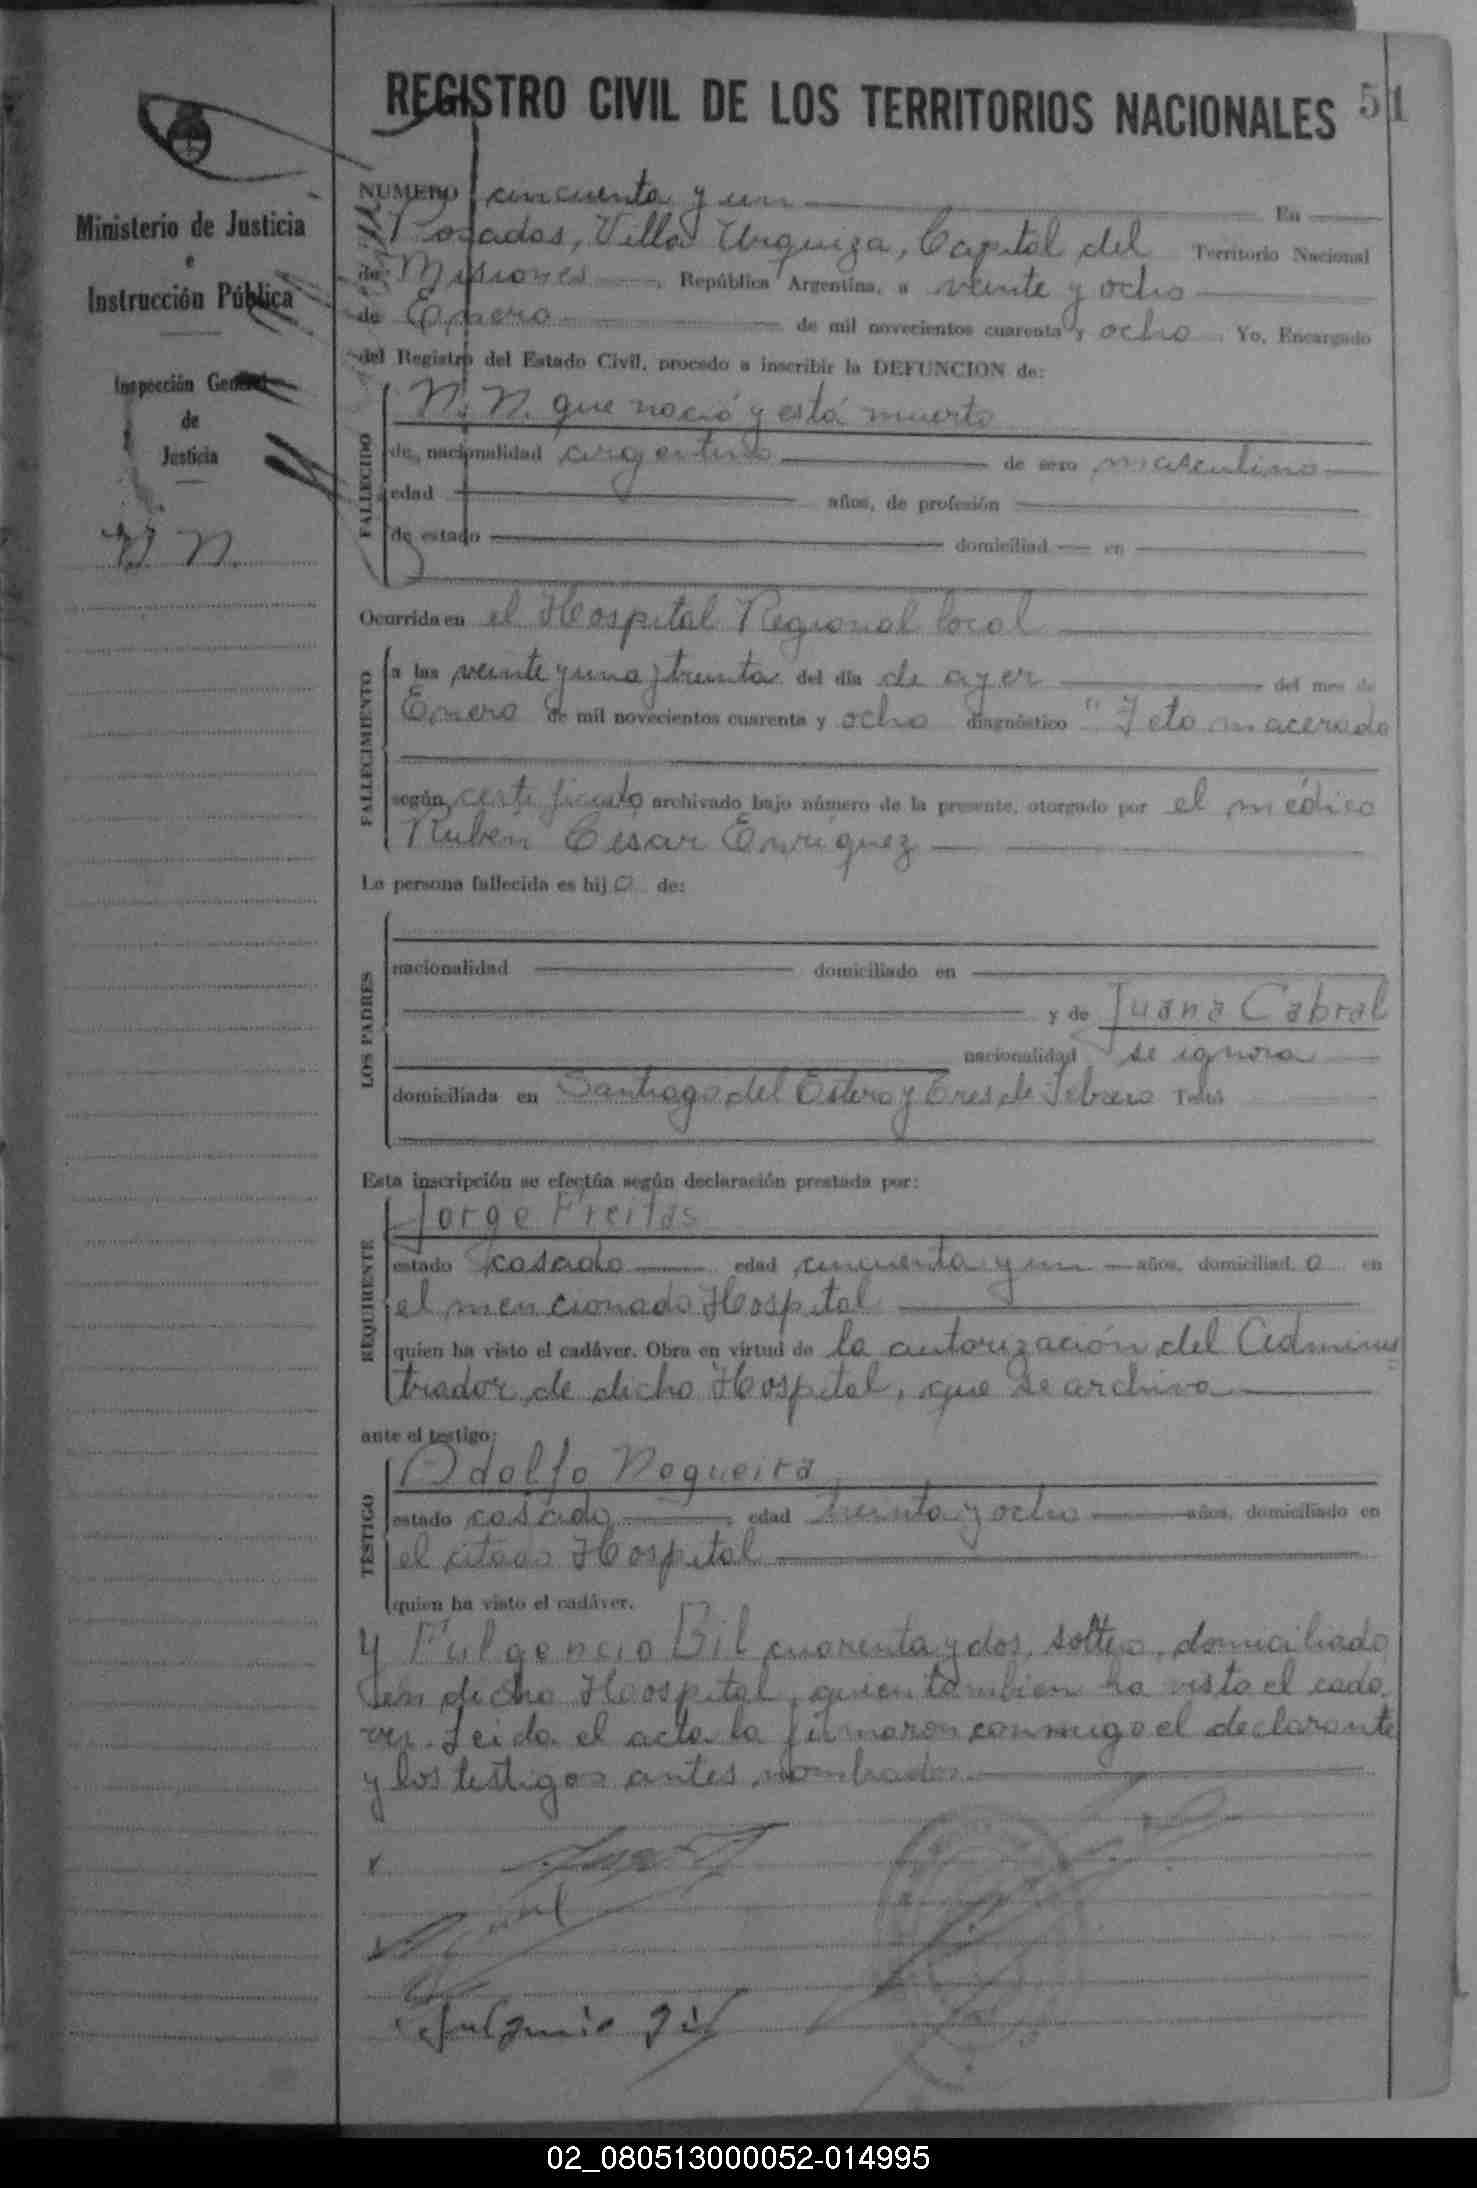 REGISTRO CIVIL DE LOS TERRITORIOS NACIONALES 51
Ministerio de Justicia
e
Instrucción Pública
Inspección General
de
Justicia
N. N.
NUMERO cincuenta y un En
Posadas, Villa Urquiza, Capital del Territorio Nacional
de Misiones, República Argentina, a veinte y ocho
de Enero de mil novecientos cuarenta y ocho. Yo, Encargado
del Registro del Estado Civil, procedo a inscribir la DEFUNCION de:
FALLECIDO
N. N. que nació y está muerto
de nacionalidad argentino de sexo masculino
edad años, de profesión
de estado domiciliad en
Ocurrida en el Hospital Regional local
FALLECIMIENTO
a las veinte y una y treinta del día de ayer del mes de
Enero de mil novecientos cuarenta y ocho diagnóstico "Feto macerado
según certificado archivado bajo número de la presente, otorgado por el médico
Rubén César Enríquez
La persona fallecida es hijo de:
LOS PADRES
nacionalidad domiciliado en
y de Juana Cabral
nacionalidad se ignora
domiciliada en Santiago del Estero y Tres de Febrero
Esta inscripción se efectúa según declaración prestada por:
REQUIRENTE
Jorge Freitas
estado casado edad cincuenta y un años, domiciliad o en
el mencionado Hospital
quien ha visto el cadáver. Obra en virtud de la autorización del Adminis
trador de dicho Hospital, que se archiva
ante el testigo:
TESTIGO
Adolfo Nogueira
estado casado, edad treinta y ocho años, domiciliado en
el citado Hospital
quien ha visto el cadáver.
y Fulgencio Gil cuarenta y dos, soltero, domiciliado
en dicho Hospital, quien tambien ha visto el cada
ver. Leida el acta la firmaron conmigo el declarante
y los testigos antes nombrados.
Fulgencio Gil
02_080513000052-014995